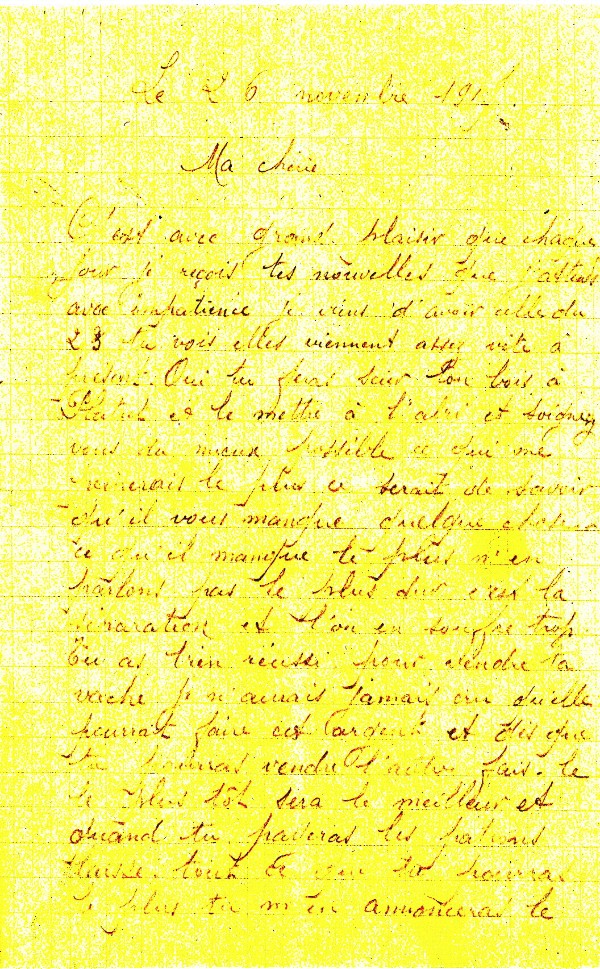 Le 26 novembre 191
Ma chérie
C'est avec grand plaisir que chaque
jour je reçois tes nouvelles que j'attends
avec impatience je viens d'avoir celle du
23 tu vois elles viennent assez vite à
présent. Oui tu feras scier ton bois à
et le mettre à l'abri et soignez
vous du mieux possible ce qui me
le plus ce serait de savoir
qu'il vous manque quelque chose
ce qu'il manque le plus n'en
parlons pas le plus dur c'est la
séparation et l'on en souffre trop
Tu as bien réussi pour vendre ta
vache je n'aurais jamais cru qu'elle
pourrait faire cet argent et dès que
tu pourras vendre l'autre fais. le
le plus tôt sera le meilleur et
quand tu payeras les patrons
tout ce que tu pourras
plus tu m'en annonceras le